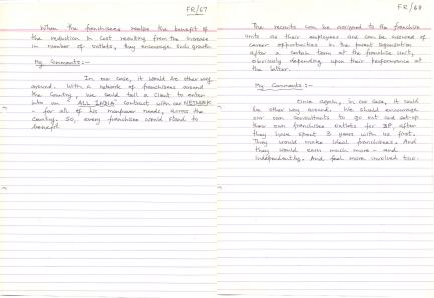 FR/67
When the franchisees realise the benefit of
the reduction in cost resulting from the increase
in number of outlets, they encourage such growth.
My Comments:-
In our case, it would be other way
around. With a network of franchisees around
the Country, we could tell a Client to enter
into an ALL INDIA Contract with our NETWORK
- for all of his manpower needs, across the
Country. So, every franchisee would stand to
benefit.
FR/68
The recruits can be assigned to the franchise
units as their employees and can be assured of
career opportunities in the parent organisation
after a certain term at the franchise unit,
obviously depending upon their performance at
the latter.
My Comments:-
Once again, in our case, it could
be other way around. We should encourage
our own consultants to go out and set-up
their own franchisee outlets for 3P, after
they have spent 3 years with us first.
They would make ideal franchisees. And
they would earn much more - and
independently. And feel more involved too.